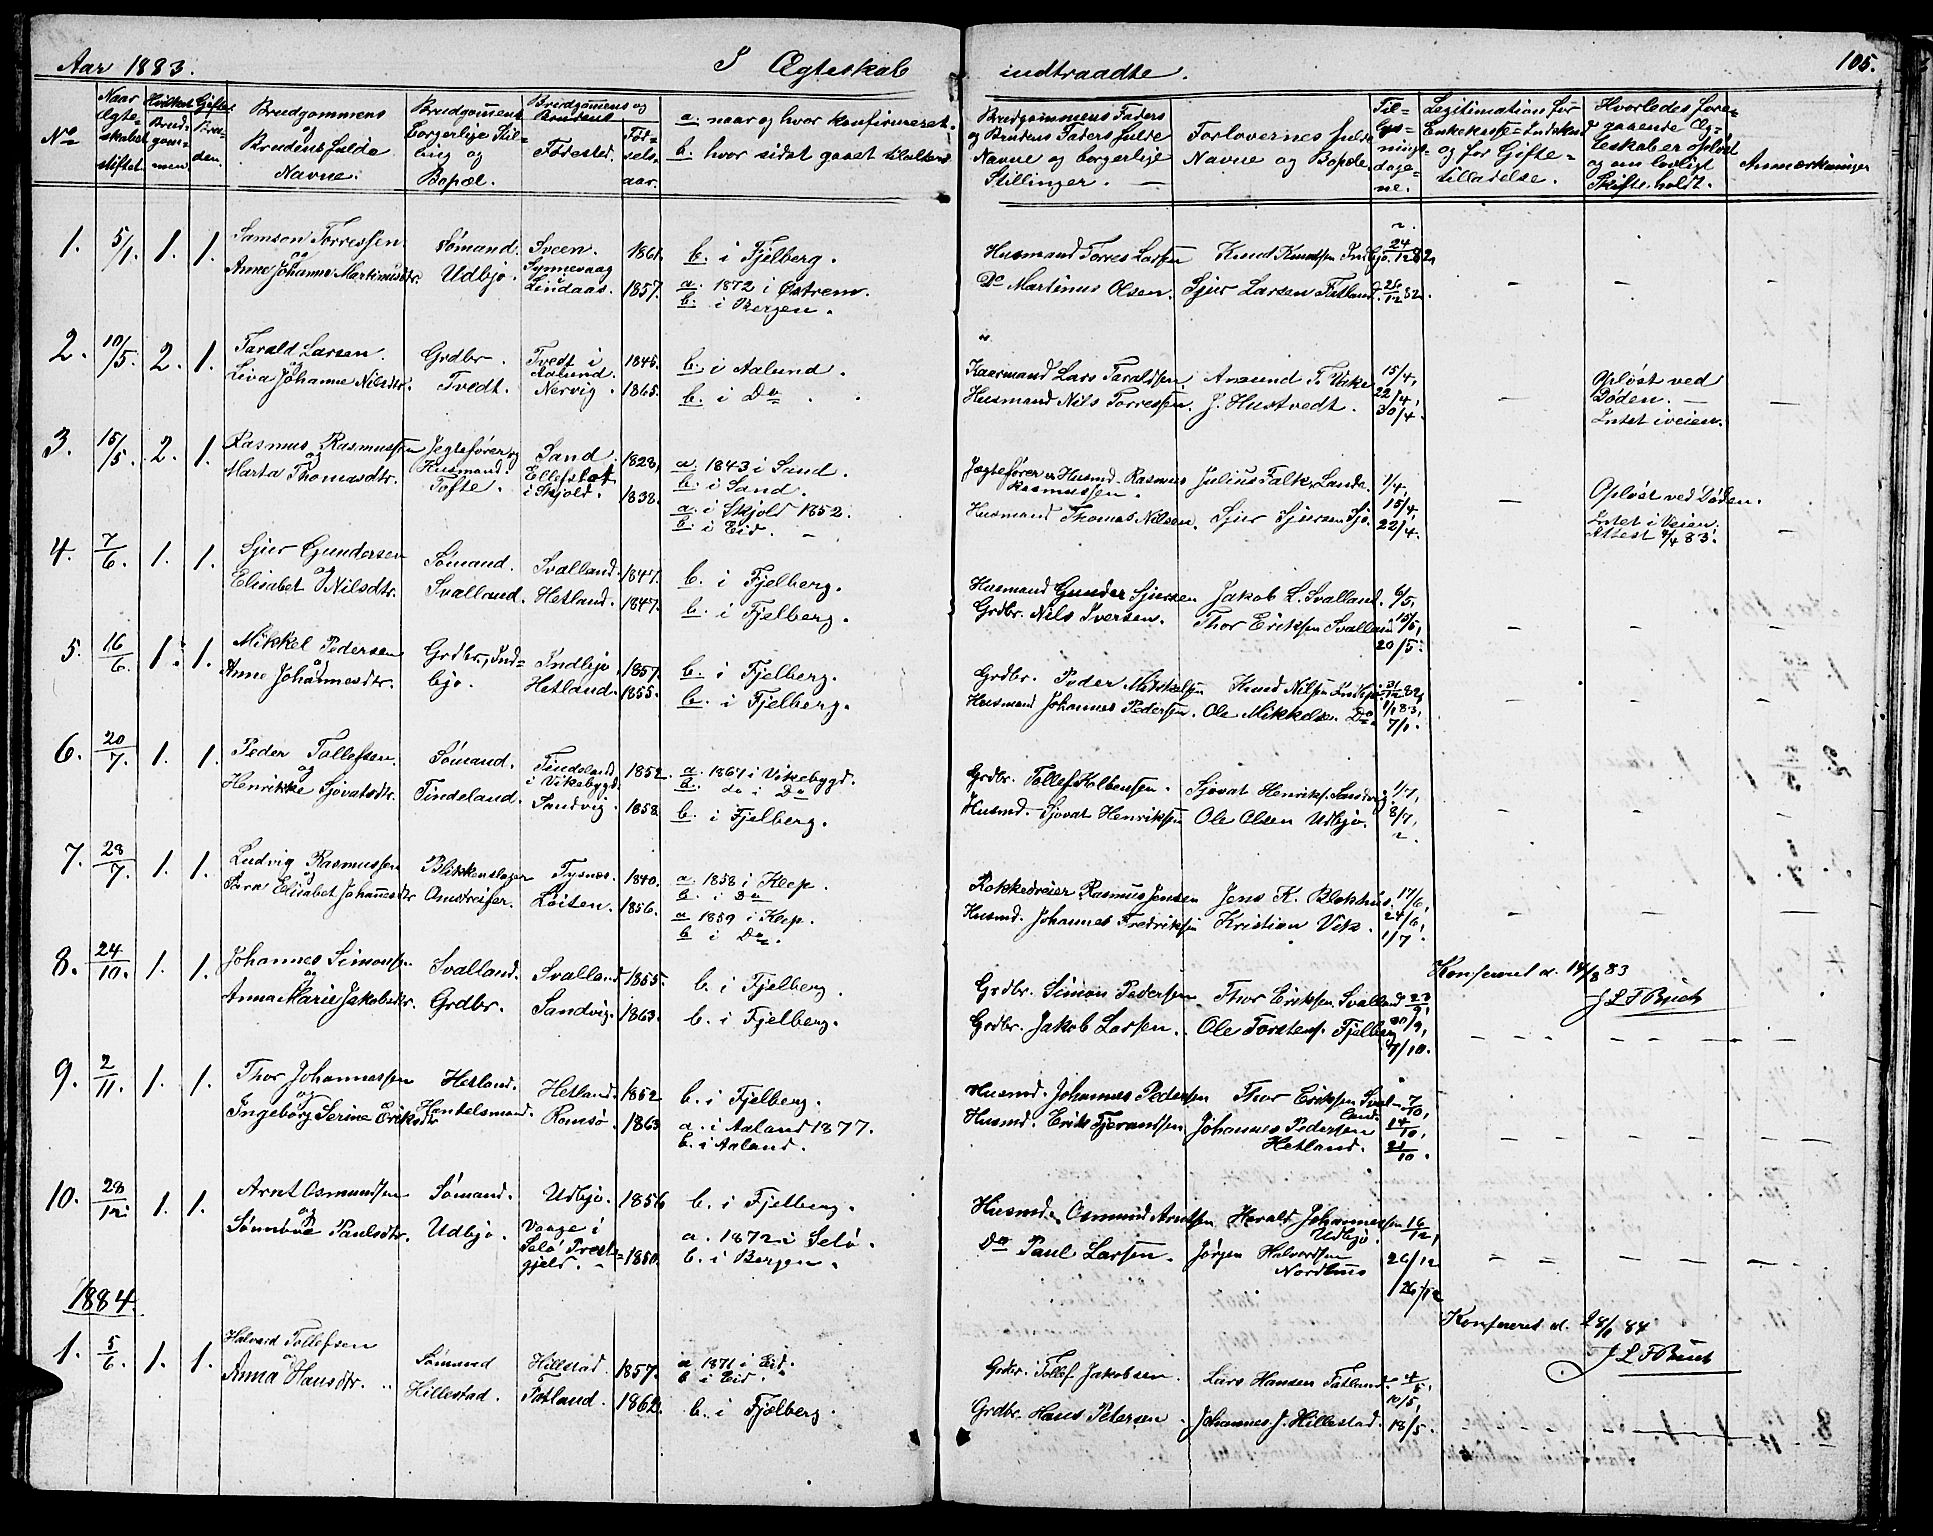 Aar 1883.
I Ægteskab indtraadte.
105.
No
Naar Ægteskabet stiftet.
Hvilket Gifter.
Brudgommen.
Bruden.
Brudgommens og Brudens fulde Navne.
Brudgommens borgerlige Stilling og Bopæl.
Brudgommens og Brudens
Fødested.
Fødselsaar.
a. naar og hvor konfirmeret.
b. hvor sidst gaaet til alters.
Brudgommens Faders og Brudens Faders fulde Navne og borgerlige Stillinger.
Forlovernes fulde Navne og Bopæle.
Tillysningsdagene.
Legitimation for Enkekasse-Indskud og for Giftetilladelse.
Hvorledes foregaaende Ægteskab er opløst og om lovligt Skifte holdt.
Anmærkninger
1. 5/1. 1. 1. Samson Torressen Sømand. Sveen. 1861. b. i Fjelberg. Husmand Torres Larsen Knud Knudsen Indbjo. 24/12 82.
og
Anne Johanne Martinusdtr. Udbjo. Synnevaag i Lindaas. 1857. a. 1872 i Østrem. Do Martinus Olsen. Sjur Larsen Fatland. 26/12 82. - - -
b. i Bergen.
2. 10/5. 2. 1. Tarald Larsen. Grdbr. Tvedt i Aalund. 1845. b. i Aalund. Kaarmand Lars Taraldsen. Amund T. Vike 15/4, Opløst ved
og
Liva Johanne Nilsdtr. Tvedt. Nervig. 1865. b. i Do Husmand Nils Torressen. J. Hustvedt. 22/4, - Døden. -
30/4. Intet i veien.
3. 15/5. 2. 1. Rasmus Rasmussen Jegtefører og Husmand. Sand. 1828, a. 1843 i Sand. Jægtefører og Husmd. Rasmus Rasmussen. Julius Falk, Sande. 1/4.
og b. i Sand.
Marta Thomasdtr. Tofte. Ellefstot i Skjold. 1838. a. i Skjold 1852. Husmand Thomas Nilsen. Sjur Sjursen Sjo. 15/4, 22/4. - Opløst ved Døden.
b. i Eid. - Intet i Veien.
Attest 7/4 83. -
4. 7/6. 1. 1. Sjur Gundersen Sømand. Svalland. 1847. b. i Fjelberg. Husmand Gunder Sjursen Jakob L. Svalland. 6/5,
og
Elisabet Nilsdtr. Svalland. Hetland. 1847. b. i Fjelberg. Grdbr. Nils Iversen. Thor Eriksen Svalland 15/5, - - -
20/5.
5. 16/6. 1. 1. Mikkel Pedersen Grdbr., Indbjo. Indbjo 1857. b. i Fjelberg. Grdbr. Peder Mikkelsen Knud Nilsen Indbjo. 31/12 82,
og
Anne Johannesdtr. Hetland. 1855. b. i Fjelberg. Husmand Johannes Pedersen. Ole Mikkelsen Do 1/1 83, - - -
7/1.
6. 20/7. 1. 1. Peder Tollefsen Sømand. Tindeland i Vikebygd. 1852. a. 1867 i Vikebygd. Grdbr. Tollef Kolbensen. Sjovat Henriks. Sandvig. 1/7,
og b. do i Do
Henrikke Sjovatsdtr. Tindeland. Sandvig. 1858. b. i Fjelberg. Husmd. Sjovat Henriksen Ole Olsen Udbjo. 8/7, - - -
7. 28/7. 1. 1. Ludvig Rasmussen Blikkenslager Tysnæs. 1840. a. 1858 i Klep. Rokkedreier Rasmus Jensen Jens K. Blokhus. 17/6,
og b. i Do
Sara Elisabet Johannesdtr Omstreifer. Loiten. 1856. a. 1859 i Klep. Husmd. Johannes Fredriksen Kristian Vik. 24/6, - - -
b. i Do. 1/7.
8. 24/10. 1. 1. Johannes Simonsen Svalland. Svalland 1855. b. i Fjelberg. Grdbr. Simon Pedersen Thor Eriksen Svalland 23/9,
og
Anna Marie Jakobsdtr. Grdbr. Sandvig. 1863. b. i Fjelberg. Grdbr. Jakob Larsen. Ole Torstens. Fjelberg 30/9,
7/10.
Konfereret d. 14/8 83
J L F Buch
- - - - - - -
9. 2/11. 1. 1. Thor Johannessen Hetland. Hetland. 1852 b. i Fjelberg. Husmd. Johannes Pedersen Thor Eriksen Svalland. 7/10,
og
Ingeborg Serine Eriksdtr Handelsmand. Romsø. 1863 a. i Aaland 1877. Husmd. Erik Tjerandsen Johannes Pedersen Hetland. 14/10, 21/10. - - -
b. i Aaland.
10. 28/12. 1. 1. Arnt Osmundsen Sømand. Udbjo. 1856 b. i Fjelberg. Husmd. Osmund Arntsen Harald Johannessen Udbjo. 16/12,
og
Sønneve Paulsdtr. Udbjo. Vaage i Selø Prestegjeld. 1850. a. 1872 i Selø. Do Paul Larsen. Jørgen Halvorsen Nordhus 26/12 - - -
b. i Bergen. 26/12
1884.
Konfereret d. 28/1 84
J L F Buch
1. 5/6. 1. 1. Halvard Tollefsen Sømand Hillestad. 1857. a 1871 i Eid. Grdbr. Tollef Jakobsen. Lars Hansen Fatland. 4/5,
og b i Eid.
Anna Hansdtr. Hillestad. Fatland. 1862. b. i Fjelberg. Grdbr. Hans Petersen. Johannes J. Hillestad. 10/5, 18/5. - - -